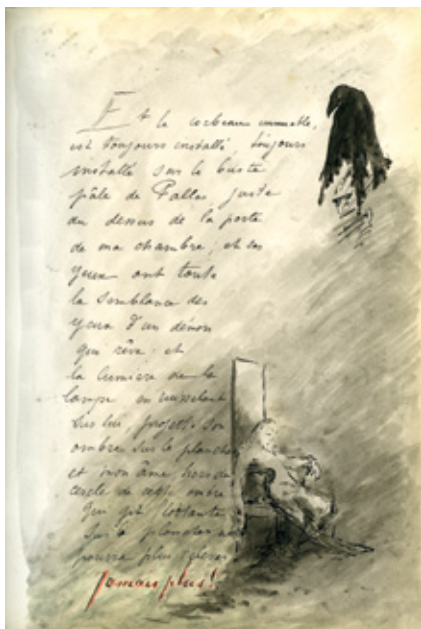 Et le corbeau immuable,
est toujours installé, toujours
installé sur le buste
pâle de Pallas, juste
au dessus de la porte
de ma chambre ; et ses
yeux ont toute
la semblance des
yeux d'un démon
qui rêve ; et
la lumière de la
lampe en ruisselant
sur lui, projette son
ombre sur le plancher
et mon âme, hors du
cercle de cette ombre
qui gît flottante
sur le plancher ne
pourra plus s'élever
Jamais plus !